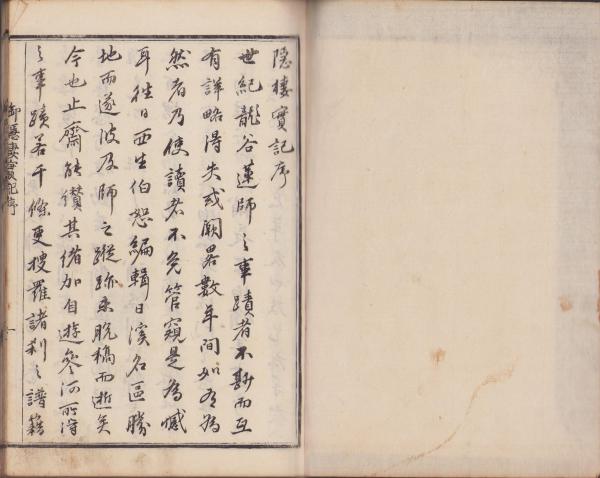 隱棲實記序
世紀龍谷蓮師之事蹟者不尠而互
有詳略得失或闕畧數年間如有為
然者乃使讀者不免管窺是為憾
耳往日西生伯恕編輯日溪名區勝
地而遂波及師之蹤跡未脫稿而逝矣
今也止齋能纉其緒加自遊參河所得
之事蹟若干條更搜羅諸刹之譜籍
御隱棲實記序
一